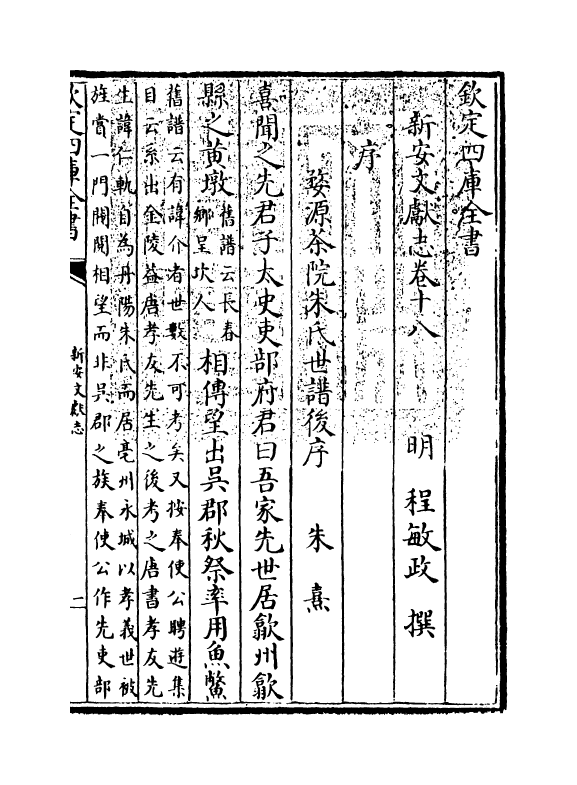 欽定四庫全書
新安文獻志卷十八
明 程敏政 撰
序
婺源茶院朱氏世譜後序 朱熹
熹聞之先君子太史吏部府君曰吾家先世居歙州歙
縣之黃墩
舊譜云長春
鄉呈坎人
相傳望出吳郡秋祭率用魚鱉
舊譜云有諱介者世數不可考矣又按奉使公聘遊集
自云系出金陵葢唐孝友先生之後考之唐書孝友先
生諱仁軌自為丹陽朱氏而居亳州永城以孝義世被
旌賞一門閥閱相望而非吳郡之族奉使公作先吏部
欽定四庫全書
新安文獻志
二